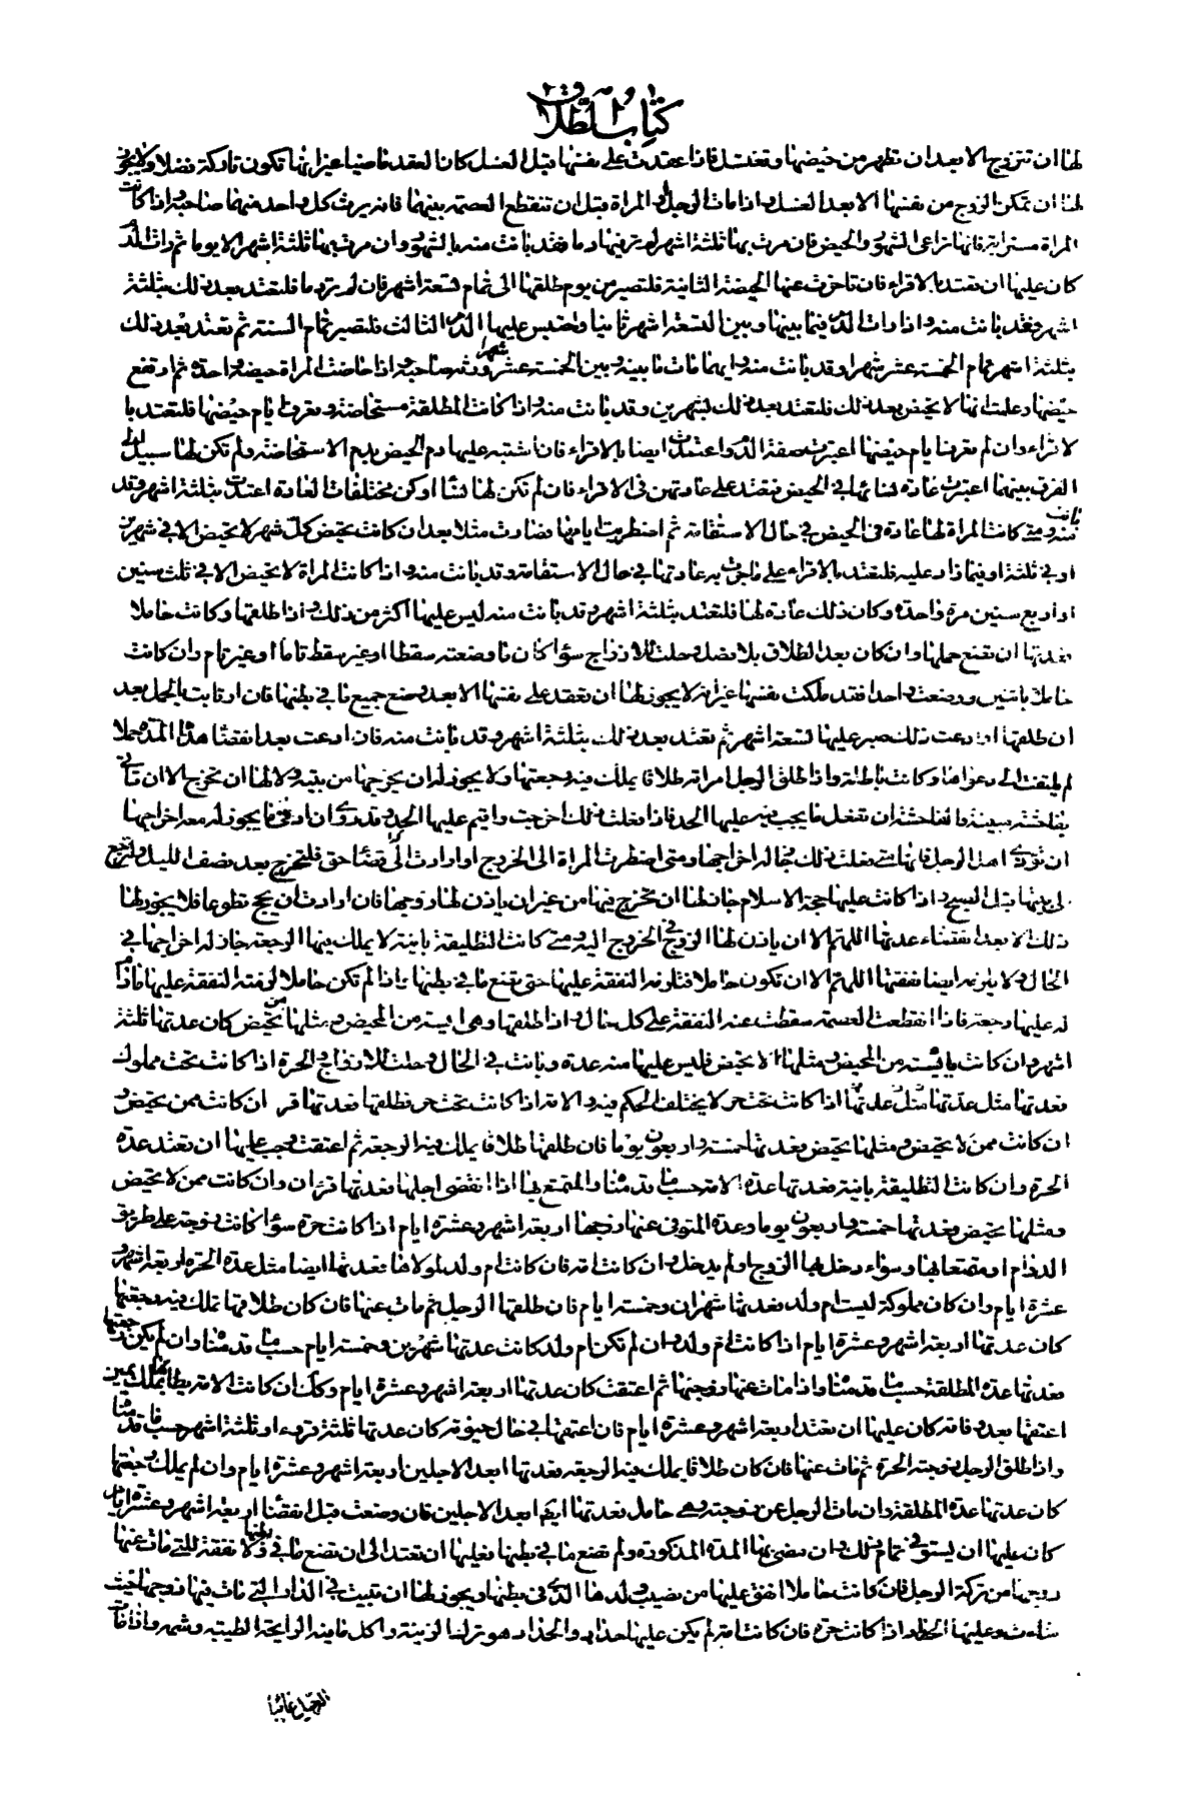 كتاب الطلاق
لها ان تتزوج الا بعد ان تطهر من حيضها وتغتسل فاذا عقدت على نفسها قبل الغسل كان العقد ماضيا غير انها تكون تاركة فضلا ولا يجوز
لها ان تمكن الزوج من نفسها الا بعد الغسل واذا مات الرجل او المراة قبل ان تنقطع العصمة بينهما فانه يرث كل واحد منهما صاحبه واذا كانت
المراة مسترابة فانها تراعى الشهور والحيض فان مرت بها ثلثة اشهر لم تر فيها دما فقد بانت منه بالشهور وان مرت بها ثلثة اشهر الا يوما ثم رات الدم
كان عليها ان تعتد بالاقراء فان تاخرت عنها الحيضة الثانية فلتصبر من يوم طلقها الى تمام تسعة اشهر فان لم تر دما فلتعتد بعد ذلك بثلثة
اشهر وقد بانت منه واذا رات الدم فيما بينها وبين التسعة اشهر ثانيا واحتبس عليها الدم الثالث فلتصبر تمام السنة ثم تعتد بعد ذلك
بثلثة اشهر تمام الخمسة عشر شهرا وقد بانت منه وايهما مات ما بينه وبين الخمسة عشر شهرا ورثه صاحبه واذا حاضت المراة حيضة واحدة ثم ارتفع
حيضها وعلمت انها لا تحيض بعد ذلك فلتعتد بعد ذلك بشهرين وقد بانت منه واذا كانت المطلقة مستحاضة وتعرف ايام حيضها فلتعتد با
لاقراء وان لم تعرف ايام حيضها اعتبرت صفة الدم واعتدت ايضا بالاقراء فان اشتبه عليها دم الحيض بدم الاستحاضة ولم تكن لها سبيل الى
الفرق بينهما اعتبرت عادة نسائها في الحيض فتعتد على عادتهن في الاقراء فان لم تكن لها نساء او كن مختلفات العادة اعتدت بثلثة اشهر وقد بانت
منه ومتى كانت المراة لها عادة في الحيض في حال الاستقامة ثم اضطربت ايامها فصارت مثلا بعد ان كانت تحيض كل شهر لا تحيض الا في شهرين
او في ثلثة او فيما زاد عليه فلتعتد بالاقراء على ما جرت به عادتها في حال الاستقامة وقد بانت منه واذا كانت المراة لا تحيض الا في ثلث سنين
او اربع سنين مرة واحدة وكان ذلك عادة لها فلتعتد بثلثة اشهر وقد بانت منه ليس عليها اكثر من ذلك واذا طلقها وكانت حاملا
فعدتها ان تضع حملها وان كان بعد الطلاق بلا فصل وحلت للازواج سواء كان ما وضعته سقطا او غير سقط تاما او غير تام وان كانت
حاملا باثنين ووضعت واحدا فقد ملكت نفسها غير انه لا يجوز لها ان تعقد على نفسها الا بعد وضع جميع ما في بطنها فان ارتابت بالحمل بعد
ان طلقها او ادعت ذلك صبر عليها تسعة اشهر ثم تعتد بعد ذلك بثلثة اشهر وقد بانت منه فان ادعت بعد انقضاء هذه المدة حملا
لم يلتفت الى دعواها وكانت باطلة واذا طلق الرجل امراته طلاقا يملك فيه رجعتها ولا يجوز له ان يخرجها من بيته ولا لها ان تخرج الا ان تاتي
بفاحشة مبينة والفاحشة ان تفعل ما يجب فيه عليها الحد فاذا فعلت ذلك اخرجت واقيم عليها الحد وقد روى ان ادنى ما يجوز له معه اخراجها
ان تؤذى اهل الرجل فانها متى فعلت ذلك جاز له اخراجها ومتى اضطرت المراة الى الخروج او ارادت الى قضاء حق فلتخرج بعد نصف الليل وترجع
الى بيتها قبل الصبح واذا كانت عليها حجة الاسلام جاز لها ان تخرج فيها من غير ان ياذن لها زوجها فان ارادت ان يحج تطوعا فلا يجوز لها
ذلك الا بعد انقضاء عدتها اللهم الا ان ياذن لها الزوج في الخروج اليه ومتى كانت التطليقة باينة لا يملك فيها الرجعة جاز له اخراجها في
الحال ولا يلزمه ايضا نفقتها اللهم الا ان تكون حاملا فتلزمه النفقة عليها حتى تضع ما في بطنها واذا لم تكن حاملا لزمته النفقة عليها ما دام
له عليها رجعة فاذا انقطعت العصمة سقطت عنه النفقة على كل حال واذا طلقها وهي ايسة من المحيض ومثلها من تحيض كان عدتها ثلثة
اشهر وان كانت يائسة من المحيض ومثلها لا تحيض فليس عليها منه عدة وبانت في الحال وحلت للازواج والحرة اذا كانت تحت مملوك
فعدتها مثل عدتها اذا كانت تحت حر لا يختلف الحكم فيه والامة اذا كانت تحت حر فطلقها فعدتها قر ان كانت ممن تحيض و
ان كانت ممن لا تحيض ومثلها تحيض فعدتها خمسة واربعون يوما فان طلقها طلاقا يملك فيه الرجعة ثم اعتقت وجب عليها ان تعتد عدة
الحرة وان كانت التطليقة باينة فعدتها عدة الامة حسب ما قدمناه والمتمتع بها اذا انقضى اجلها فعدتها قرءان وان كانت ممن لا تحيض
ومثلها تحيض فعدتها خمسة واربعون يوما وعدة المتوفى عنها زوجها اربعة اشهر وعشرة ايام اذا كانت حرة سواء كانت زوجة على طريق
الدوام او متمتعا بها وسواء دخل بها الزوج او لم يدخل وان كانت امة فان كانت ام ولد لمولاها فعدتها ايضا مثل عدة الحرة اربعة اشهر و
عشرة ايام وان كان مملوكة ليست ام ولد فعدتها شهران وخمسة ايام فان طلقها الرجل ثم مات عنها فان كان طلاقها تملك فيه رجعتها
كان عدتها اربعة اشهر وعشرة ايام اذا كانت ام ولد وان لم تكن ام ولد كانت عدتها شهرين وخمسة ايام حسب ما قدمناه وان لم يكن له رجعتها
فعدتها عدة المطلقة حسب ما قدمناه واذا مات عنها زوجها ثم اعتقت كان عدتها اربعة اشهر وعشرة ايام وكذلك ان كانت الامة يطأها بملك يمين
اعتقها بعد وفاته كان عليها ان تعتد اربعة اشهر وعشرة ايام فان اعتقها في حال حيوته كان عدتها ثلثة قروء او ثلثة اشهر حسب ما قدمناه
واذا طلق الرجل زوجته الحرة ثم مات عنها فان كان طلاقا يملك فيه الرجعة فعدتها ابعد الاجلين اربعة اشهر وعشرة ايام وان لم يملك رجعتها
كان عدتها عدة المطلقة وان مات الرجل عن زوجته وهي حامل فعدتها ايضا ابعد الاجلين فان وضعت قبل انقضاء اربعة اشهر وعشرة ايام
كان عليها ان يستوفى تمام ذلك وان مضى بها المدة المذكورة ولم تضع ما في بطنها فعليها ان تعتد الى ان تضع ما في بطنها ولا نفقة للتي مات عنها
زوجها من تركة الرجل فان كانت حاملا انفق عليها من نصيب ولدها الذي في بطنها ويجوز لها ان تبيت في الدار التي مات فيها زوجها حيث
شاءت وعليها الحداد اذا كانت حرة فان كانت امة لم يكن عليها حداد والحداد هو ترك الزينة واكل ما فيه الرايحة الطيبة وشمه واذا مات
الرجل غائبا